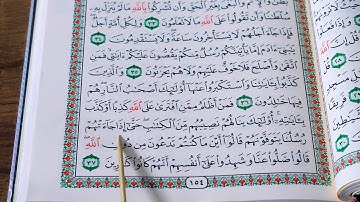 وَٱلْإِثْمَ وَٱلْبَغْىَ بِغَيْرِ ٱلْحَقِّ وَأَن تُشْرِكُوا۟ بِٱللَّهِ مَا لَمْ يُنَزِّلْ بِهِۦ
سُلْطَٰنًا وَأَن تَقُولُوا۟ عَلَى ٱللَّهِ مَا لَا تَعْلَمُونَ ٣٣ وَلِكُلِّ أُمَّةٍ أَجَلٌ
فَإِذَا جَآءَ أَجَلُهُمْ لَا يَسْتَأْخِرُونَ سَاعَةً وَلَا يَسْتَقْدِمُونَ ٣٤
يَٰبَنِىٓ ءَادَمَ إِمَّا يَأْتِيَنَّكُمْ رُسُلٌ مِّنكُمْ يَقُصُّونَ عَلَيْكُمْ ءَايَٰتِى فَمَنِ
ٱتَّقَىٰ وَأَصْلَحَ فَلَا خَوْفٌ عَلَيْهِمْ وَلَا هُمْ يَحْزَنُونَ ٣٥ وَٱلَّذِينَ
كَذَّبُوا۟ بِـَٔايَٰتِنَا وَٱسْتَكْبَرُوا۟ عَنْهَآ أُو۟لَٰٓئِكَ أَصْحَٰبُ ٱلنَّارِ هُمْ
فِيهَا خَٰلِدُونَ ٣٦ فَمَنْ أَظْلَمُ مِمَّنِ ٱفْتَرَىٰ عَلَى ٱللَّهِ كَذِبًا أَوْ كَذَّبَ
بِـَٔايَٰتِهِۦٓ أُو۟لَٰٓئِكَ يَنَالُهُمْ نَصِيبُهُم مِّنَ ٱلْكِتَٰبِ حَتَّىٰٓ إِذَا جَآءَتْهُمْ
رُسُلُنَا يَتَوَفَّوْنَهُمْ قَالُوٓا۟ أَيْنَ مَا كُنتُمْ تَدْعُونَ مِن دُونِ ٱللَّهِ
قَالُوا۟ ضَلُّوا۟ عَنَّا وَشَهِدُوا۟ عَلَىٰٓ أَنفُسِهِمْ أَنَّهُمْ كَانُوا۟ كَٰفِرِينَ ٣٧
١٥٤